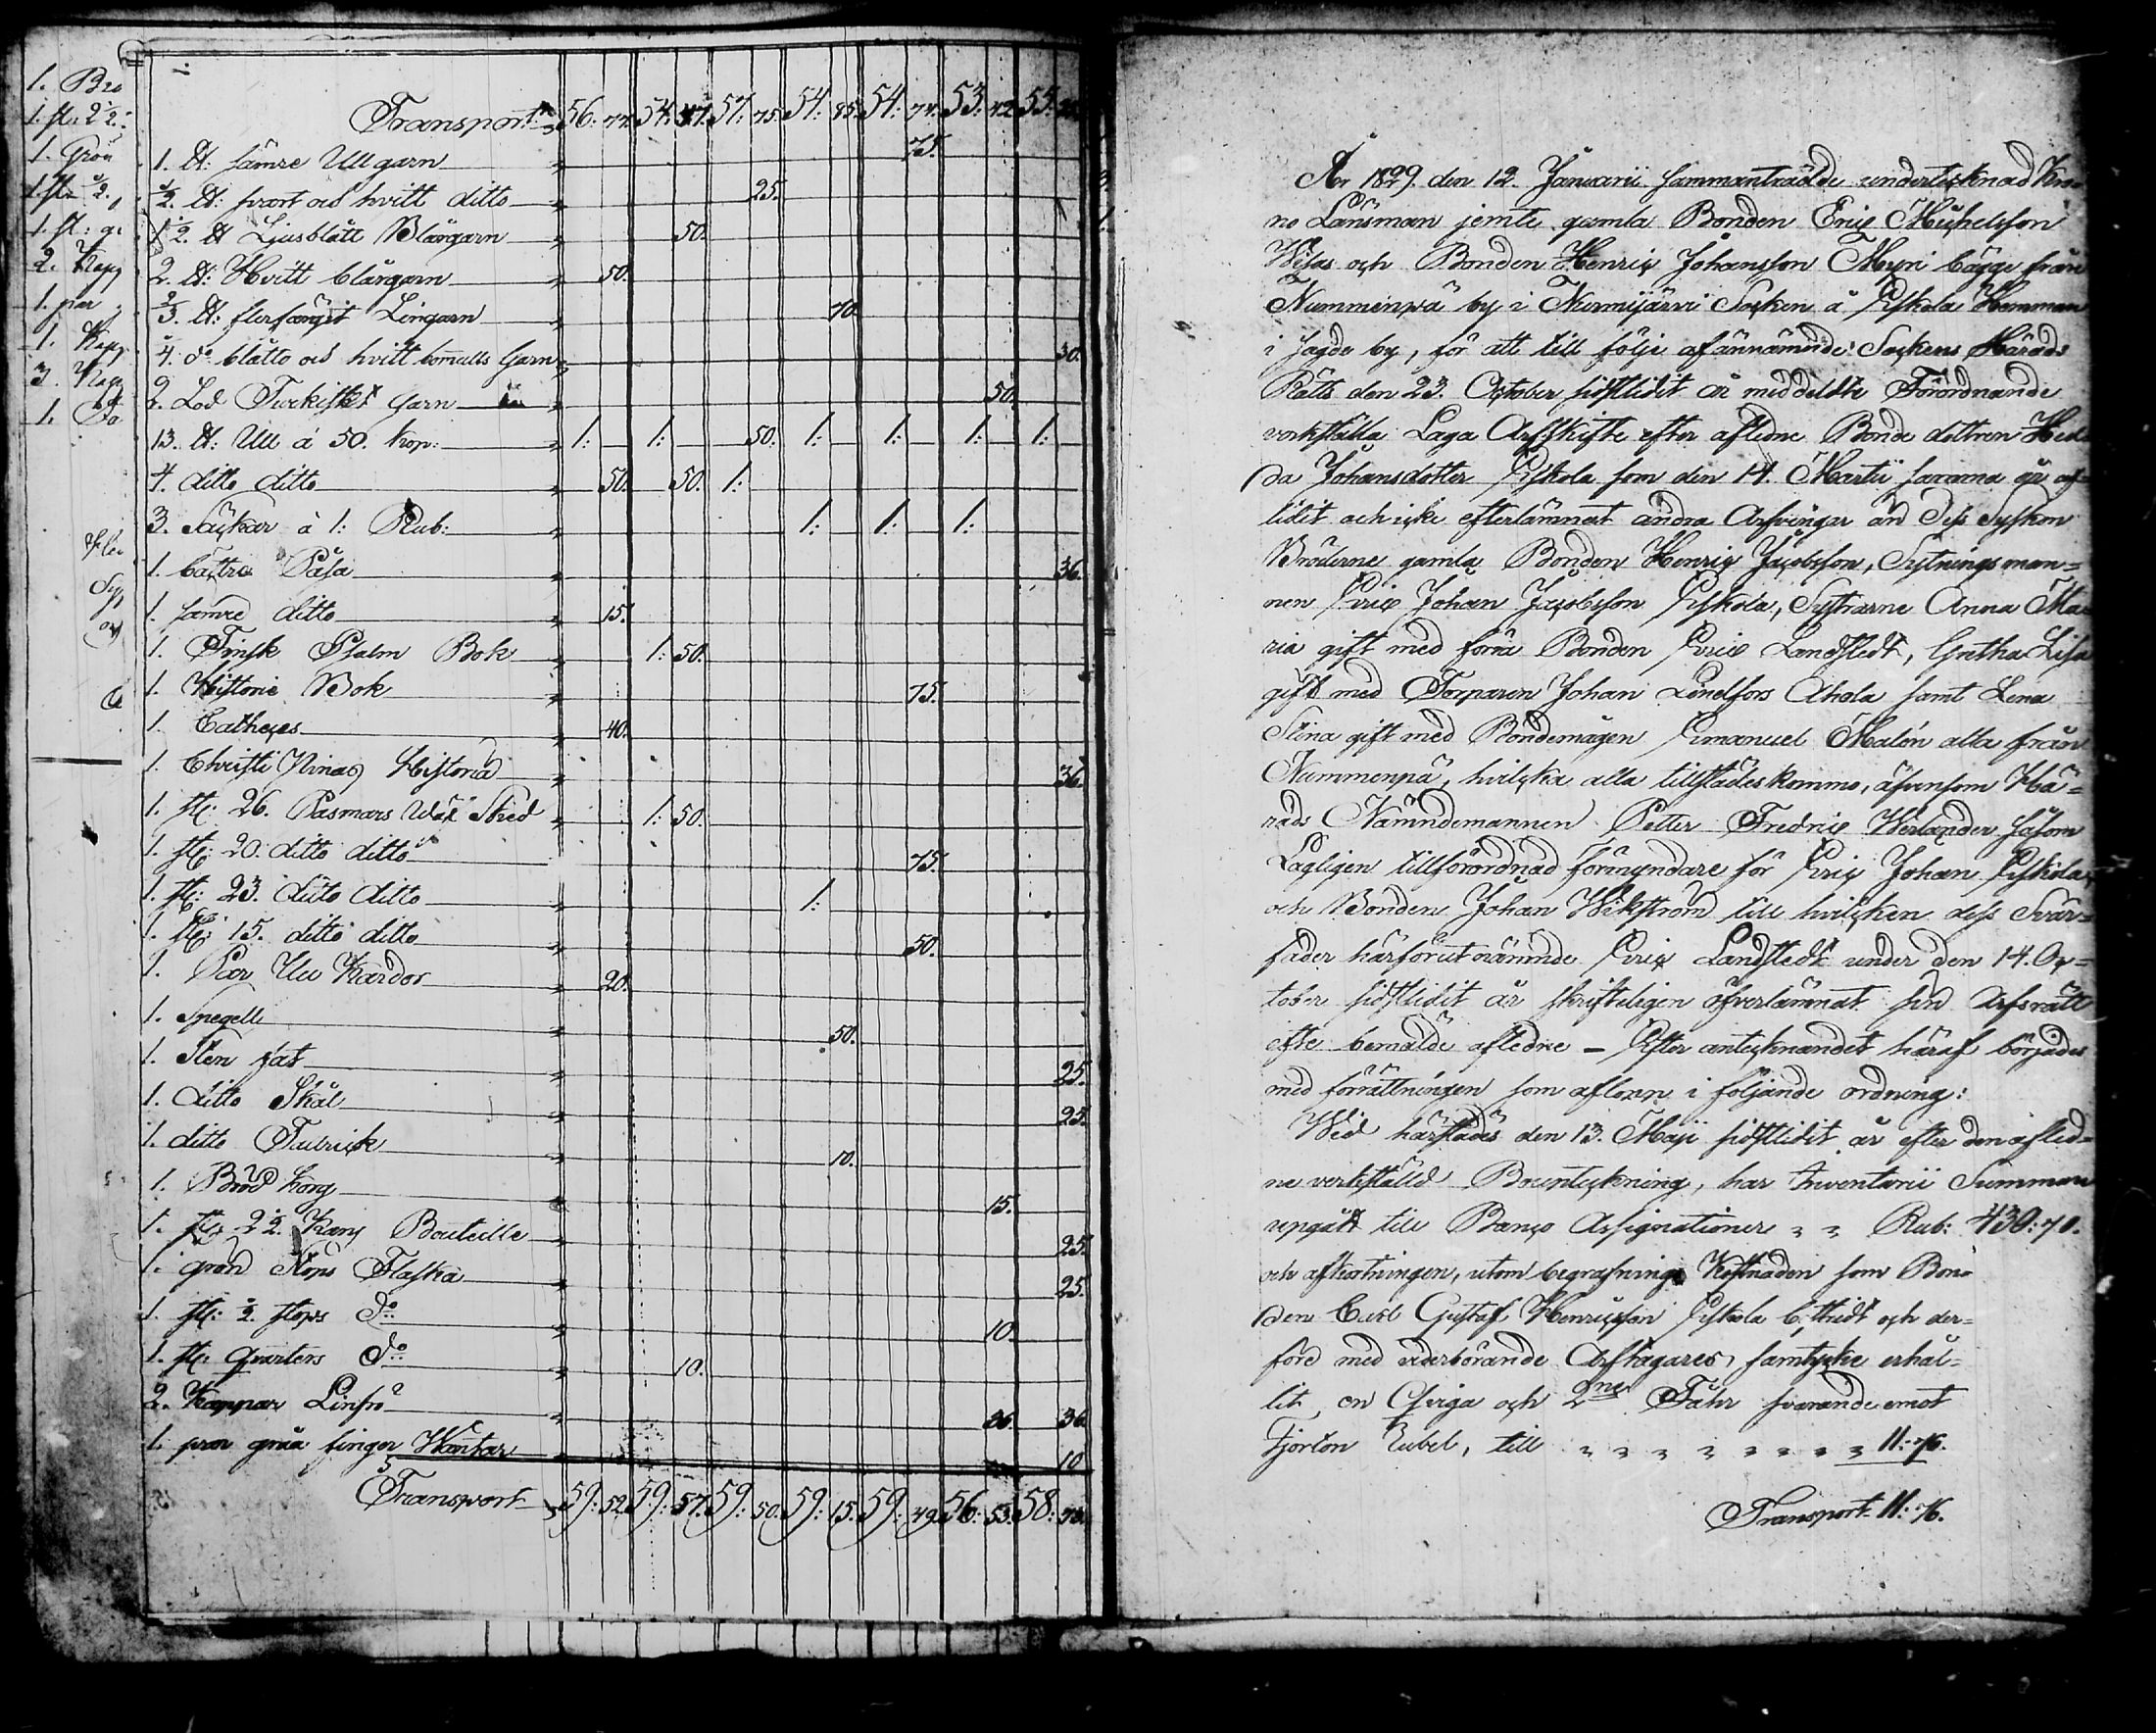 1. Bro
1. st: 2 1/2
1. Grön
1. st: 1/2.
1. st: g
2. Kapp
1. par
1. Kapp
3. Kapp
Transport 56: 77. 54: 47. 57: 75. 54: 85. 54: 74. 53: 42 55:
1. ℔: sämre Ullgarn 75.
1/2. ℔: svart och hvitt ditto 25.
1 1/2. ℔ Ljusblått Blångarn 50.
2. ℔: Hvitt blångarn 50.
2/3. ℔: flerfärgit Lingarn 70.
4. do blåtto och hvitt bomulls Garn 30.
2. Lod Turkiskt Garn 50.
13. ℔: Ull á 50. kop: 1: 1: 50. 1: 1: 1: 1:
4. ditto ditto 50. 50. 1:
3. Säckar à 1: Rub: 1: 1: 1:
1. bättre Påsa 36.
1. sämre ditto 15.
1. Finsk Psalm Bok 1: 50.
1. Historie Bok 75.
1. Catheces 40.
1. Christi Pinas Historia 36.
1. st: 26. Pasmars Wäf Sked 1: 50.
1. st: 20. ditto ditto 75.
1. st: 23. ditto ditto 1:
1. st: 15. ditto ditto 50.
1. Par Ull Kardor 20.
1. Spegell 50.
1. Sten fat 25.
1. ditto Skål 25.
1. ditto Tallrick 10.
1. Bröd korg 15.
1. st: 2 1/2. Kans Bouteille 25.
1. grön Stops Flaska 25.
1. st: 1/2. stops do 10.
1. st: qvarters do 10.
2. Kappar Linfrö 36. 36.
1. par gråa finger Wantar 10
Transport 59: 52. 59: 57. 59: 50. 59: 15. 59: 49. 56: 53. 58: 78.
År 1829. den 12. Januarii sammanträdde undertecknad Kro-
no Länsman jemte gamla Bonden Eric Michelsson
Wisas och Bonden Henric Johansson Myri bägge från
Nummenpä by i Nurmijärvi Socken å Piskola Hemman
i sagde by, för att till följe af ännämnde Sockens Härads
Rätts den 23. October sidstlidit år meddelte Förordnande
verkställa Laga Arfskifte efter aflidne Bonde dottren Hed-
da Johansdotter Piskola som den 14. Martii samma år af-
lidit och icke efterlämnat andra Arfvingar än dess Syskon
Bröderne gamla Bonden Henric Jacobsson, Sytningsman-
nen Eric Johan Jacobsson Piskola, Systrarne Anna Ma-
ria gift med förra Bonden Eric Landstedt, Gretha Lisa
gift med Torparen Johan Lindfors Ahola samt Lena
Stina gift med Bondemågen Emanuel Malén alla från
Nummenpä, hvilcka alla tillstädeskommo, äfvensom Hä-
rads Nämndemannen Petter Fredric Werlander såsom
Lagligen tillförordnad förmyndare för Eric Johan Piskola,
och Bonden Johan Wikström till hvilcken dess Svär-
fader härförutnämnde Eric Landstedt under den 14. Oc-
tober sidstlidit år skrifteligen öfverlämnat sin Arfsrätt
efter bemälde aflidne – Efter antecknandet häraf börjades
med förrättningen som aflopp i följande ordning:
Wid härstädes den 13. Maji sidstlidit år efter den aflid-
ne verkställd Bouptekning, har Inventarii Summan
upgått till Banco Assignationer " " Rub: 430: 70.
och afkortningen, utom begrafnings Kostnaden som Bon-
den Carl Gustaf Henricsson Piskola bestridt och der-
före med vederbörande Arftagares samtycke erhål-
lit, en Qviga och 2ne Fåhr svarande emot
Fjorton Rubel, till " " " " " " " " " 11: 76.
Transport 11: 76.